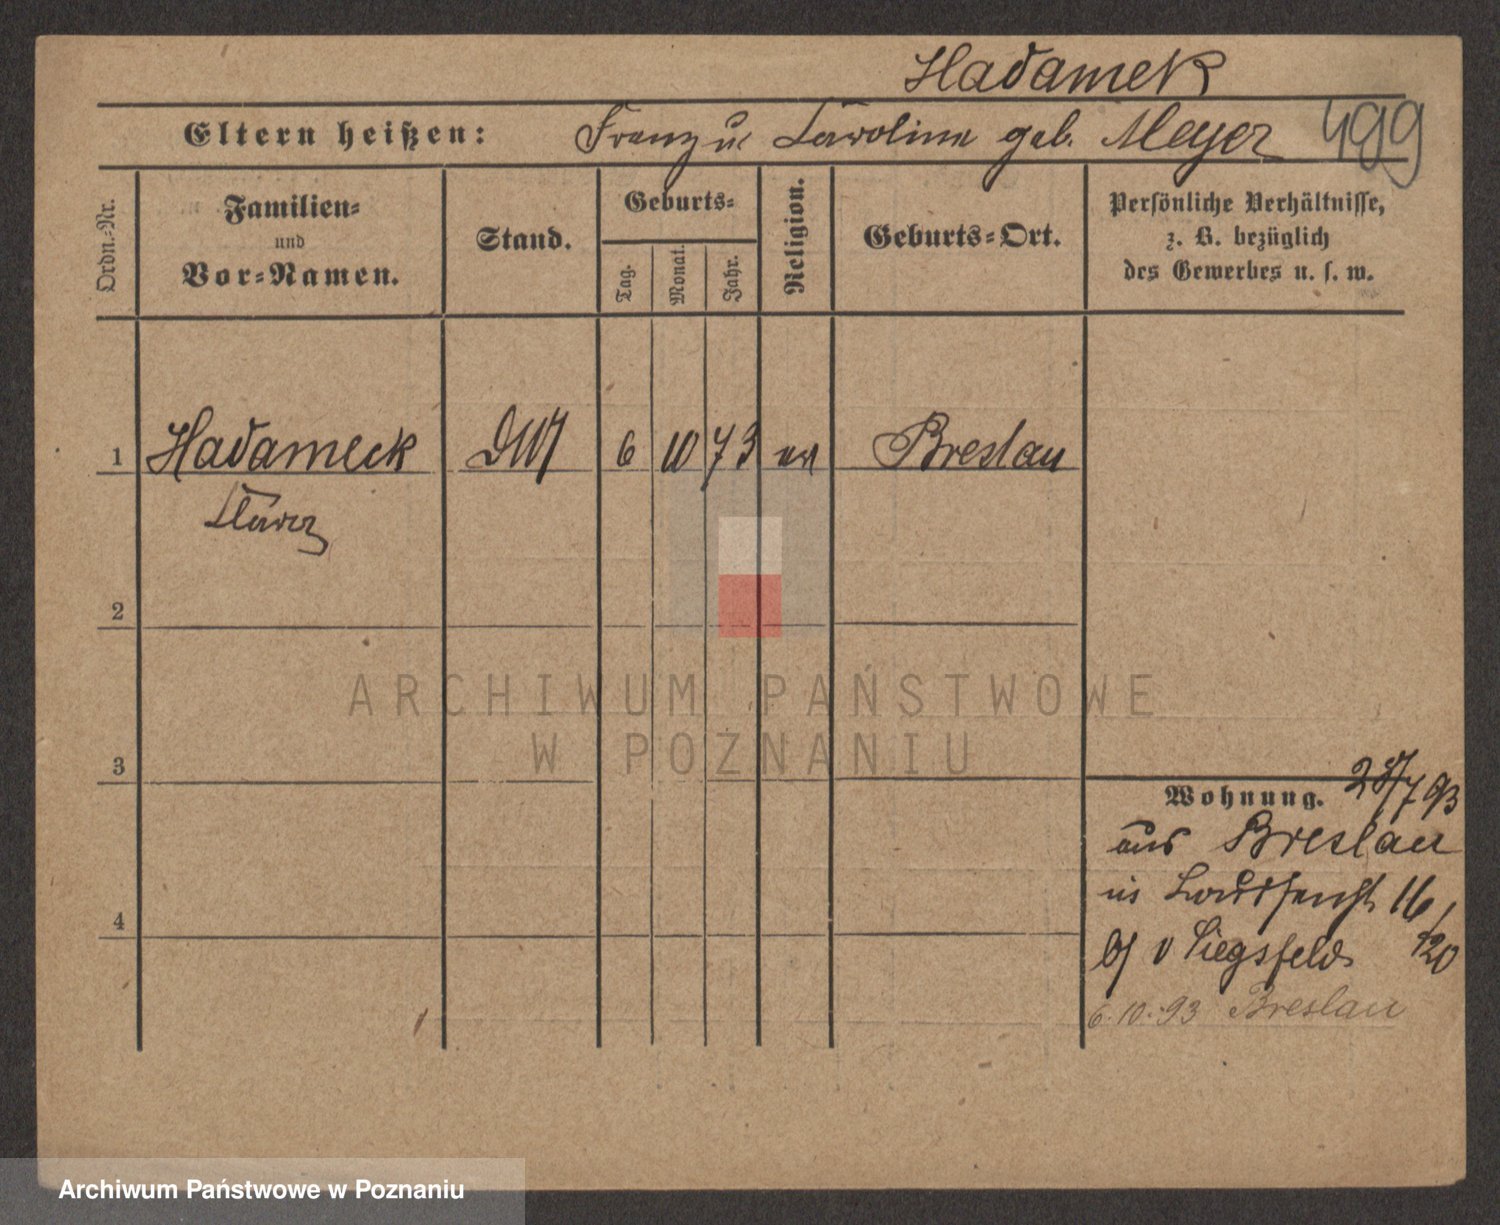 Hadamek
Eltern heißen: Franz u Caroline geb. Meyer 499
Ordn.-Nr.
Familien-
und
Vor-Namen.
Stand.
Geburts-
Tag.
Monat.
Jahr.
Religion.
Geburts-Ort.
Persönliche Verhältnisse,
z. B. bezüglich
des Gewerbes u. s. w.
1 Hadameck 6 10 73 Breslau
Clara
2
3
4
Wohnung. 7 93
aus Breslau
in 16/20
v Siegsfeld
6.10.93 Breslau
ARCHIWUM PAŃSTWOWE
W POZNANIU
Archiwum Państwowe w Poznaniu